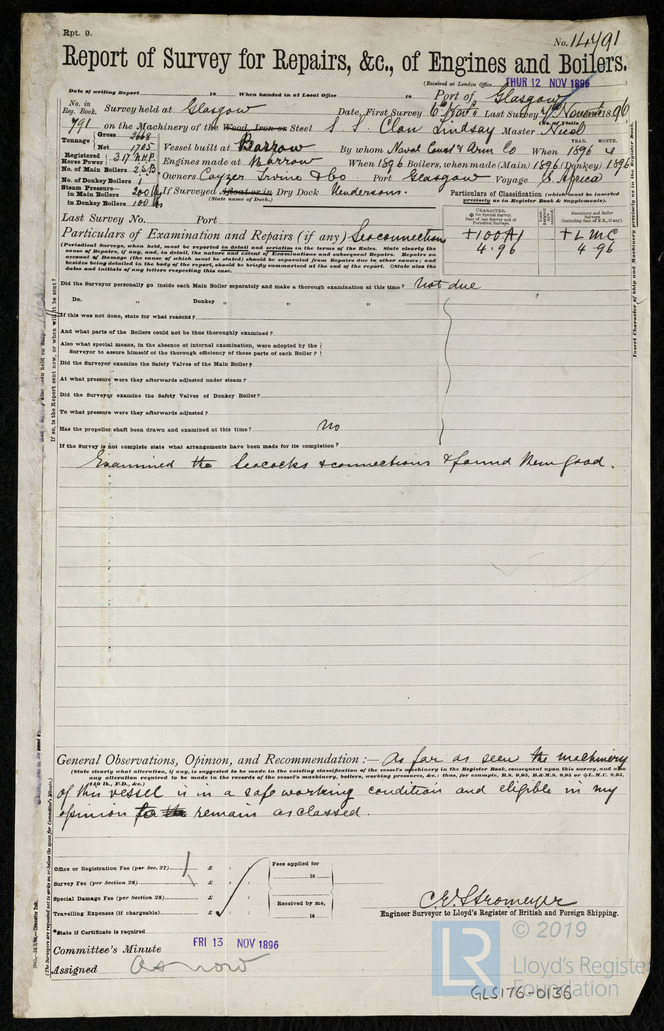 Rpt. 9.
No. 14791
Report of Survey for Repairs, &c., of Engines and Boilers.
(Received at London Office THUR 12 NOV 1896
Date of writing Report 18 When handed in at Local Office 18 Port of Glasgow
No. in Reg. Book. Survey held at Glasgow Date, First Survey 6th Nov Last Survey 7 November 1896
791 on the Machinery of the Wood, Iron or Steel S. S. Clan Lindsay Master
Tonnage Gross 2668 Net 1725 Vessel built at Barrow By whom Naval Const & Arm Co When 1896 4
Registered Horse Power 317 NHP Engines made at Barrow When 1896 Boilers, when made (Main) 1896 (Donkey) 1896
No. of Main Boilers No. of Donkey Boilers Owners Cayzer Irvine & Co Port Glasgow Voyage S Africa
Steam Pressure in Main Boilers 200 lb in Donkey Boilers 100 lb If Surveyed Afloat or in Dry Dock Hendersons.
(State name of Dock.)
Particulars of Classification (which must be inserted precisely as in Register Book & Supplements).
Last Survey No. Port
Particulars of Examination and Repairs (if any) Seaconnections
+100A1 +LMC
4.96 4.96
(Periodical Surveys, when held, must be reported in detail and seriatim in the terms of the Rules. State clearly the
cause of Repairs, if any, and, in detail, the nature and extent of Examinations and subsequent Repairs. Repairs on
account of Damage (the cause of which must be stated) should be separated from Repairs due to other causes; and
besides being detailed in the body of the report, should be briefly summarised at the end of the report. State also the
dates and initials of any letters respecting this case.)
Did the Surveyor personally go inside each Main Boiler separately and make a thorough examination at this time? Not due
Do. " Donkey " " "
If this was not done, state for what reasons?
And what parts of the Boilers could not be thus thoroughly examined?
Also what special means, in the absence of internal examination, were adopted by the
Surveyor to assure himself of the thorough efficiency of those parts of each Boiler?
Did the Surveyor examine the Safety Valves of the Main Boiler?
At what pressure were they afterwards adjusted under steam?
Did the Surveyor examine the Safety Valves of Donkey Boiler?
To what pressure were they afterwards adjusted?
Has the propeller shaft been drawn and examined at this time? No
If the Survey is not complete state what arrangements have been made for its completion?
Examined the Seacocks & connections & found them good.
General Observations, Opinion, and Recommendation:— As far as seen the machinery
(State clearly what alteration, if any, is suggested to be made in the existing classification of the vessel's machinery in the Register Book, consequent upon this survey, and also
any alteration required to be made in the records of the vessel's machinery, boilers, working pressures, &c.: thus, for example, B.S. 9,95, B.&M.S. 9,95 or +L.M.C. 9,95,
of this vessel is in a safe working condition and eligible in my
opinion to remain as classed.
Office or Registration Fee (per Sec. 27) £ : : Fees applied for
Survey Fee (per Section 28) £ : : 18
Special Damage Fee (per Section 28) £ : : Received by me,
Travelling Expenses (if chargeable) £ : : 18
C. E. Stromeyer
Engineer Surveyor to Lloyd's Register of British and Foreign Shipping.
*State if Certificate is required
Committee's Minute FRI 13 NOV 1896
Assigned As now
LR © 2019
Lloyd's Register
Foundation
GLS176-0136